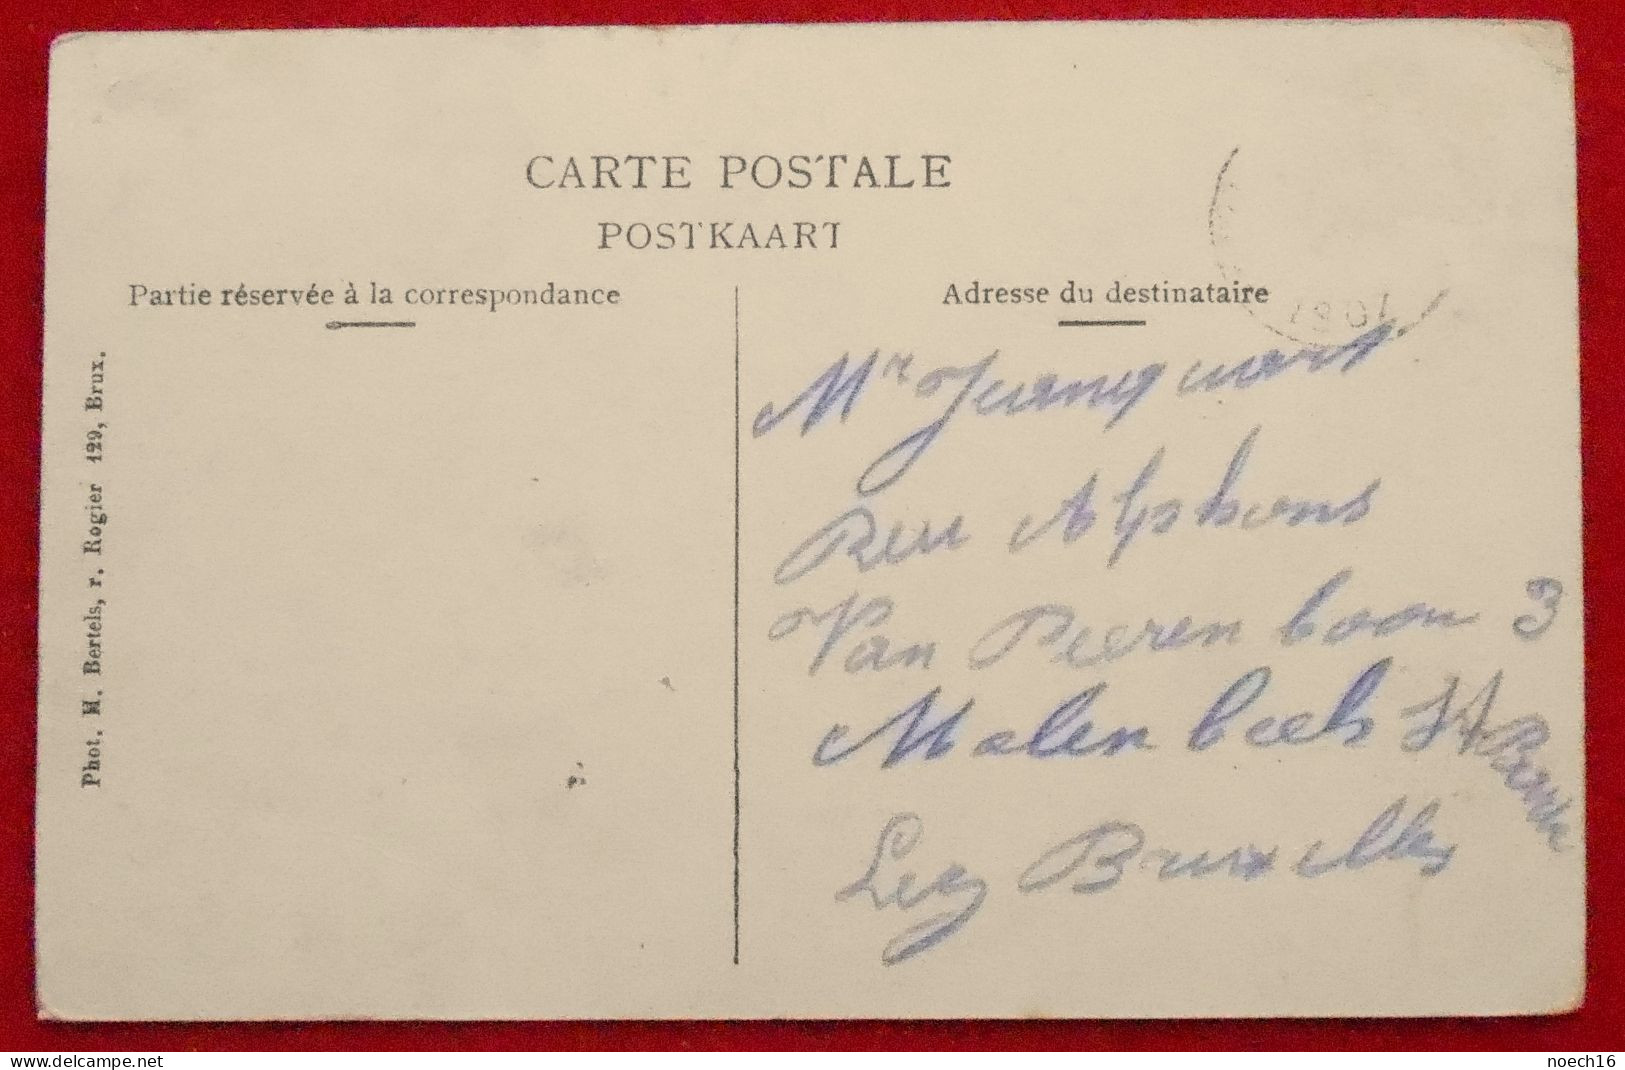 CARTE POSTALE
POSTKAART
Partie réservée à la correspondance
Adresse du destinataire
Phot. H. Bertels, r. Rogier 129, Brux.
Mr
Rue Alphons
Van Peeren boom 3
Molenbeek St
Lez Bruxelles
noech16